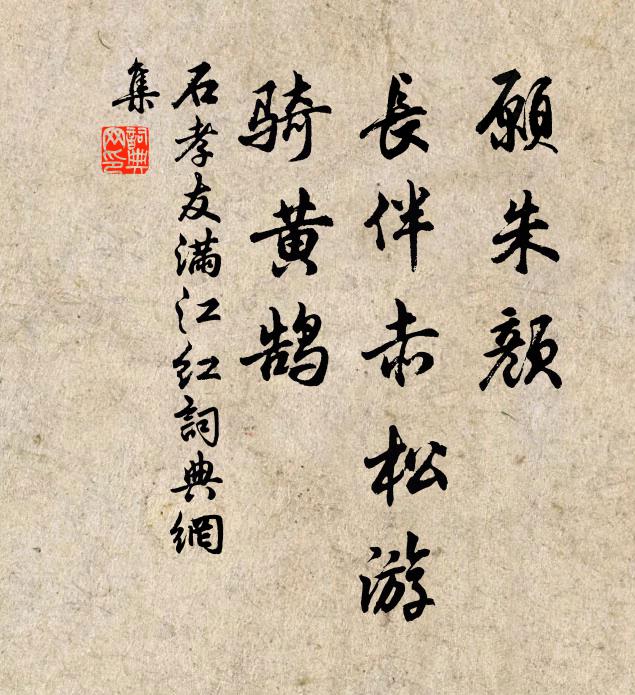 願朱顏
長伴赤松游
騎黃鹄
石孝友满江红詞典網
集
詞典
网印